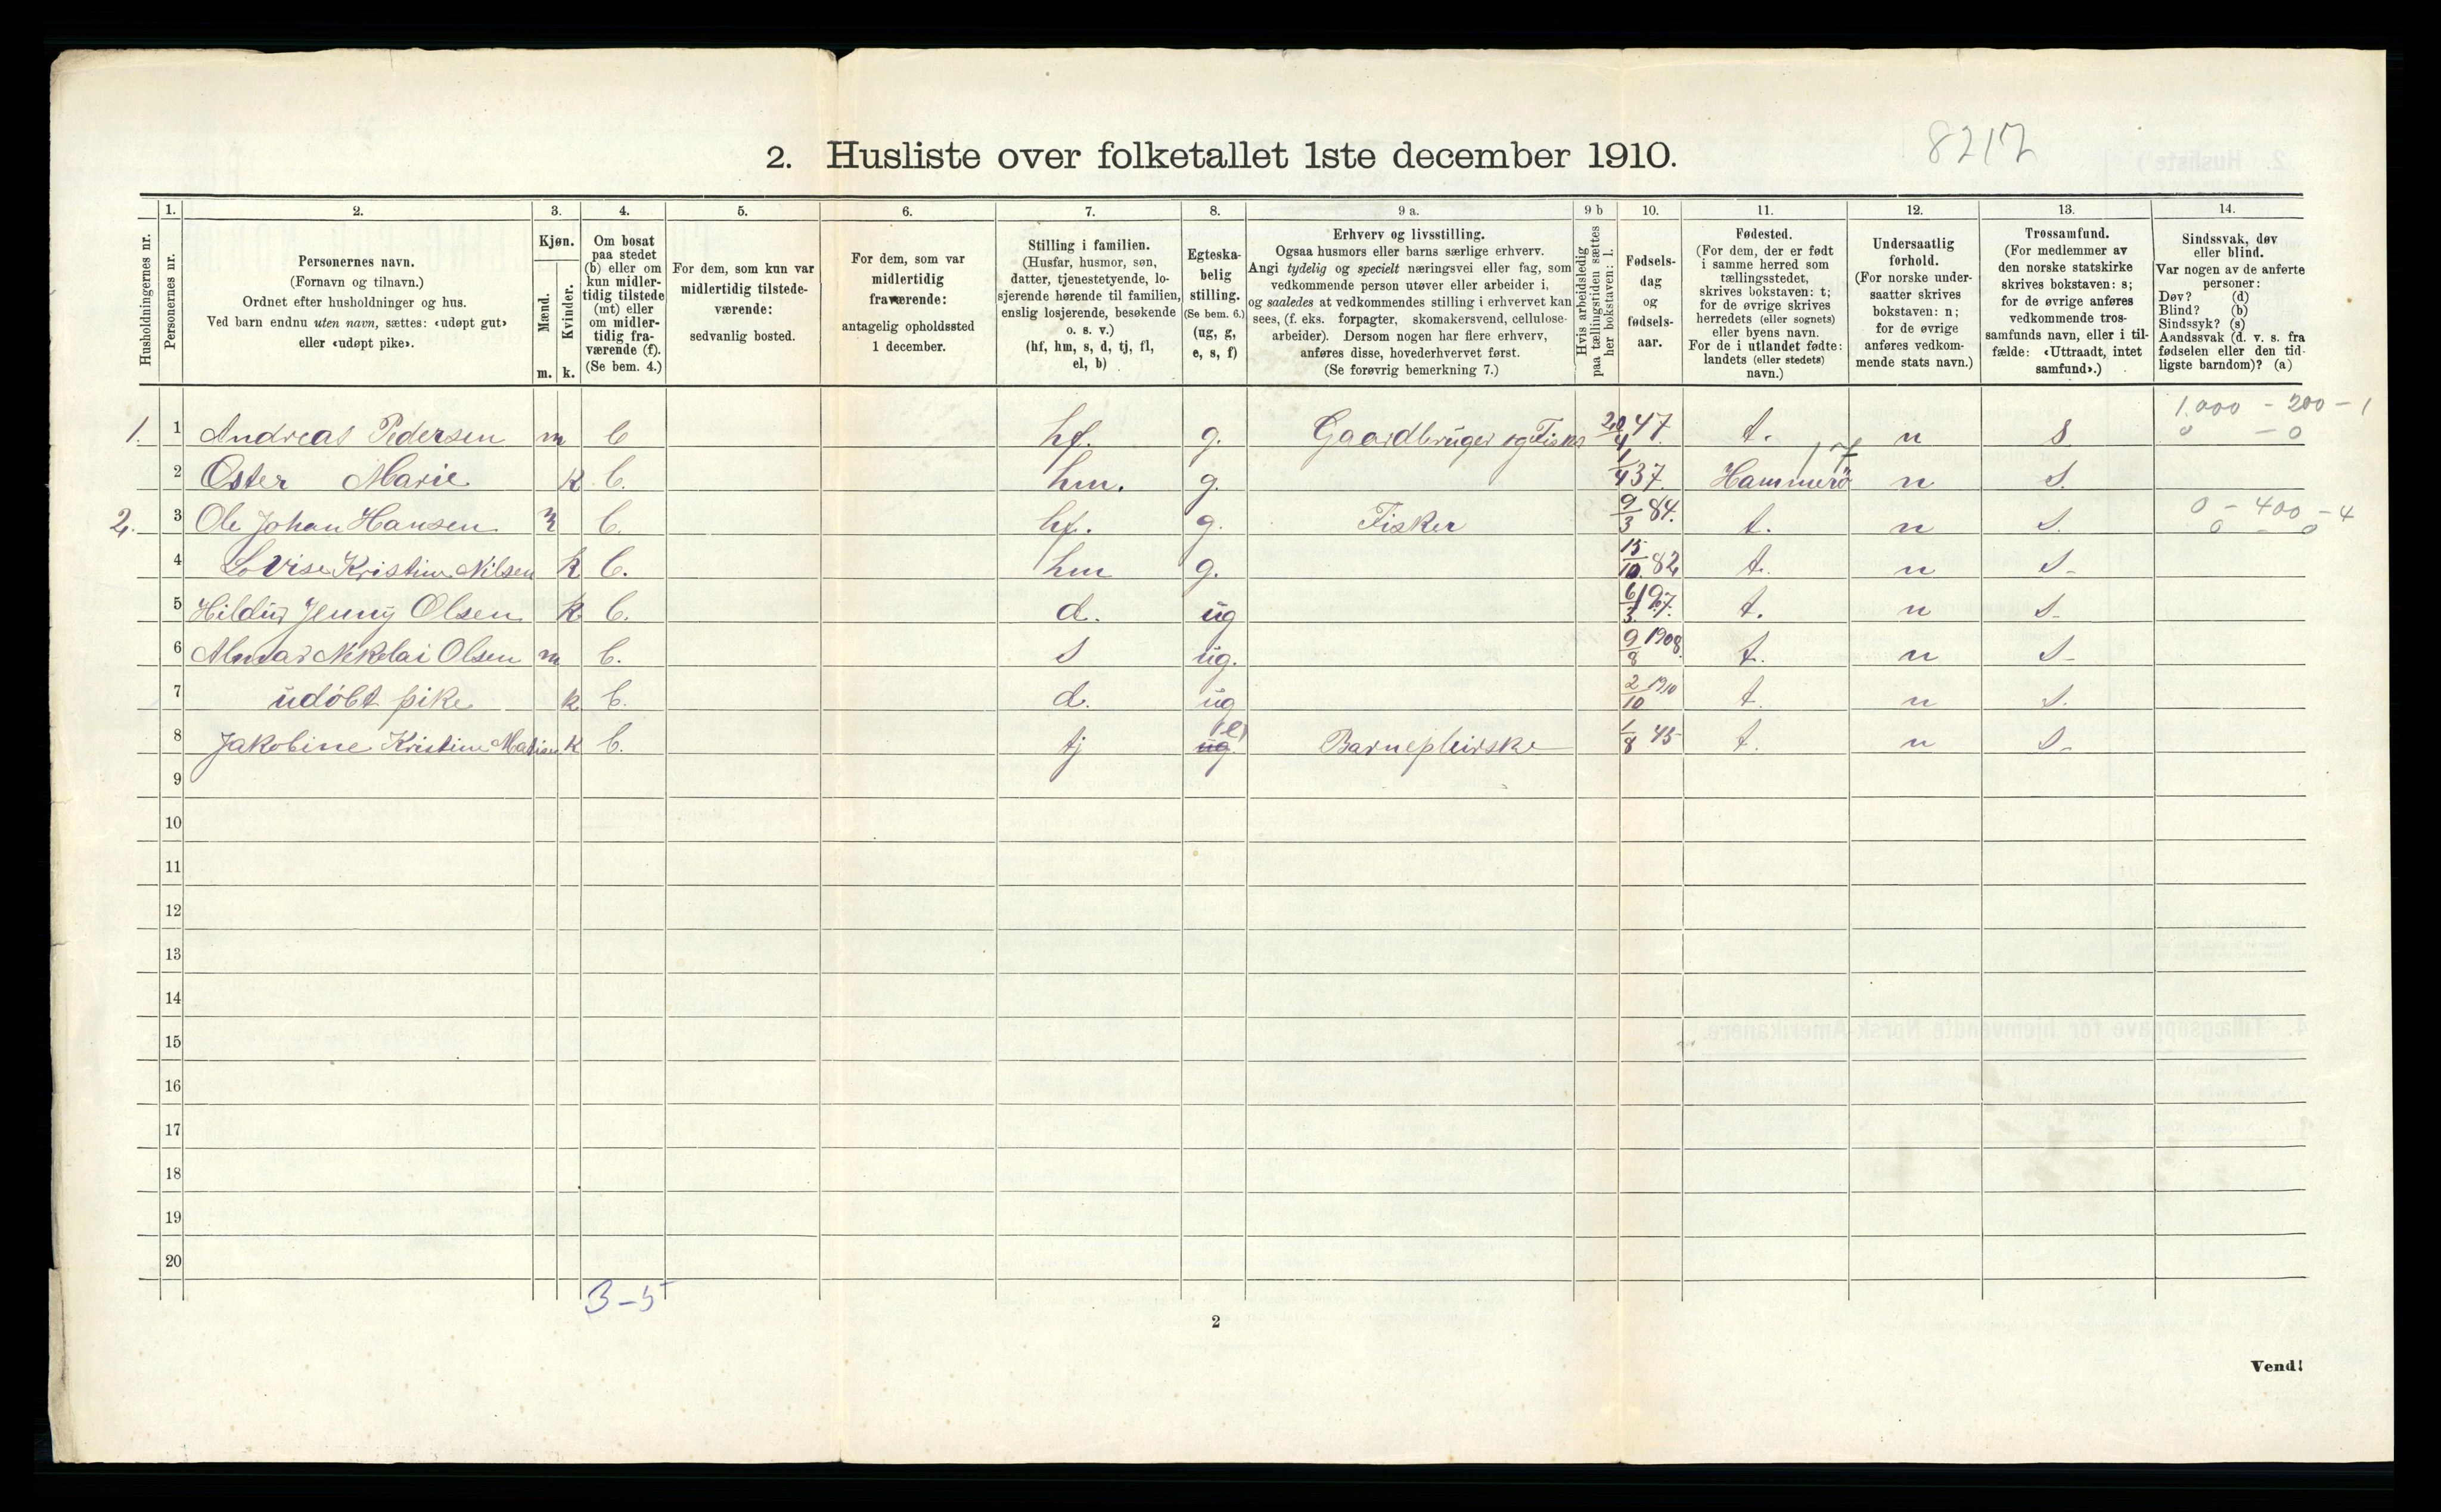 2. Husliste over folketallet 1ste december 1910.
8217
Husholdningernes nr.
1. 2. 3. 4. 5. 6. 7. 8. 9 a. 9 b 10. 11. 12. 13. 14.
Personernes nr.
Personernes navn.
(Fornavn og tilnavn.)
Ordnet efter husholdninger og hus.
Ved barn endnu uten navn, sættes: «udøpt gut»
eller «udøpt pike».
Kjøn.
Mænd.
Kvinder.
m. k.
Om bosat
paa stedet
(b) eller om
kun midler-
tidig tilstede
(mt) eller
om midler-
tidig fra-
værende (f).
(Se bem. 4.)
For dem, som kun var
midlertidig tilstede-
værende:
sedvanlig bosted.
For dem, som var
midlertidig
fraværende:
antagelig opholdssted
1 december.
Stilling i familien.
(Husfar, husmor, søn,
datter, tjenestetyende, lo-
sjerende hørende til familien,
enslig losjerende, besøkende
o. s. v.)
(hf, hm, s, d, tj, fl,
el, b)
Egteska-
belig
stilling.
(Se bem. 6.)
(ug, g,
e, s, f)
Erhverv og livsstilling.
Ogsaa husmors eller barns særlige erhverv.
Angi tydelig og specielt næringsvei eller fag, som
vedkommende person utøver eller arbeider i,
og saaledes at vedkommendes stilling i erhvervet kan
sees, (f. eks. forpagter, skomakersvend, cellulose-
arbeider). Dersom nogen har flere erhverv,
anføres disse, hovederhvervet først.
(Se forøvrig bemerkning 7.)
Hvis arbeidsledig
paa tællingstiden sættes
her bokstaven: l.
Fødsels-
dag
og
fødsels-
aar.
Fødested.
(For dem, der er født
i samme herred som
tællingsstedet,
skrives bokstaven: t;
for de øvrige skrives
herredets (eller sognets)
eller byens navn.
For de i utlandet fødte:
landets (eller stedets)
navn.)
Undersaatlig
forhold.
(For norske under-
saatter skrives
bokstaven: n;
for de øvrige
anføres vedkom-
mende stats navn.)
Trossamfund.
(For medlemmer av
den norske statskirke
skrives bokstaven: s;
for de øvrige anføres
vedkommende tros-
samfunds navn, eller i til-
fælde: «Uttraadt, intet
samfund».)
Sindssvak, døv
eller blind.
Var nogen av de anførte
personer:
Døv? (d)
Blind? (b)
Sindssyk? (s)
Aandssvak (d. v. s. fra
fødselen eller den tid-
ligste barndom)? (a)
1,000 - 200 - 1
1. 1 Andreas Pedersen m b hf. g. Gaardbruger og Fisker 20/4 47. t. n s 0 - 0
17
2 Ester Marie k b. hm. g. 1/4 37. Hammerö n s.
0 - 400 - 4
2. 3 Ole Johan Hansen m b. hf. g. Fisker 9/3 84. t. n s. 0 - 0
4 Lovise Kristine Nilsen k b. hm g. 15/10 82 t. n s-
5 Hildur Jenny Olsen k b. d. ug 6/3 1907. t. n s-
6 Almar Nikolai Olsen m b. s ug. 9/8 1908. t. n s-
7 udöbt pike k b. d. ug 2/10 1910 t. n s.
8 Jakobine Kristine k b. tj ug e) Barnepleirske 1/8 45 t. n s-
9
10
11
12
13
14
15
16
17
18
19
20
3-5
2
Vend!